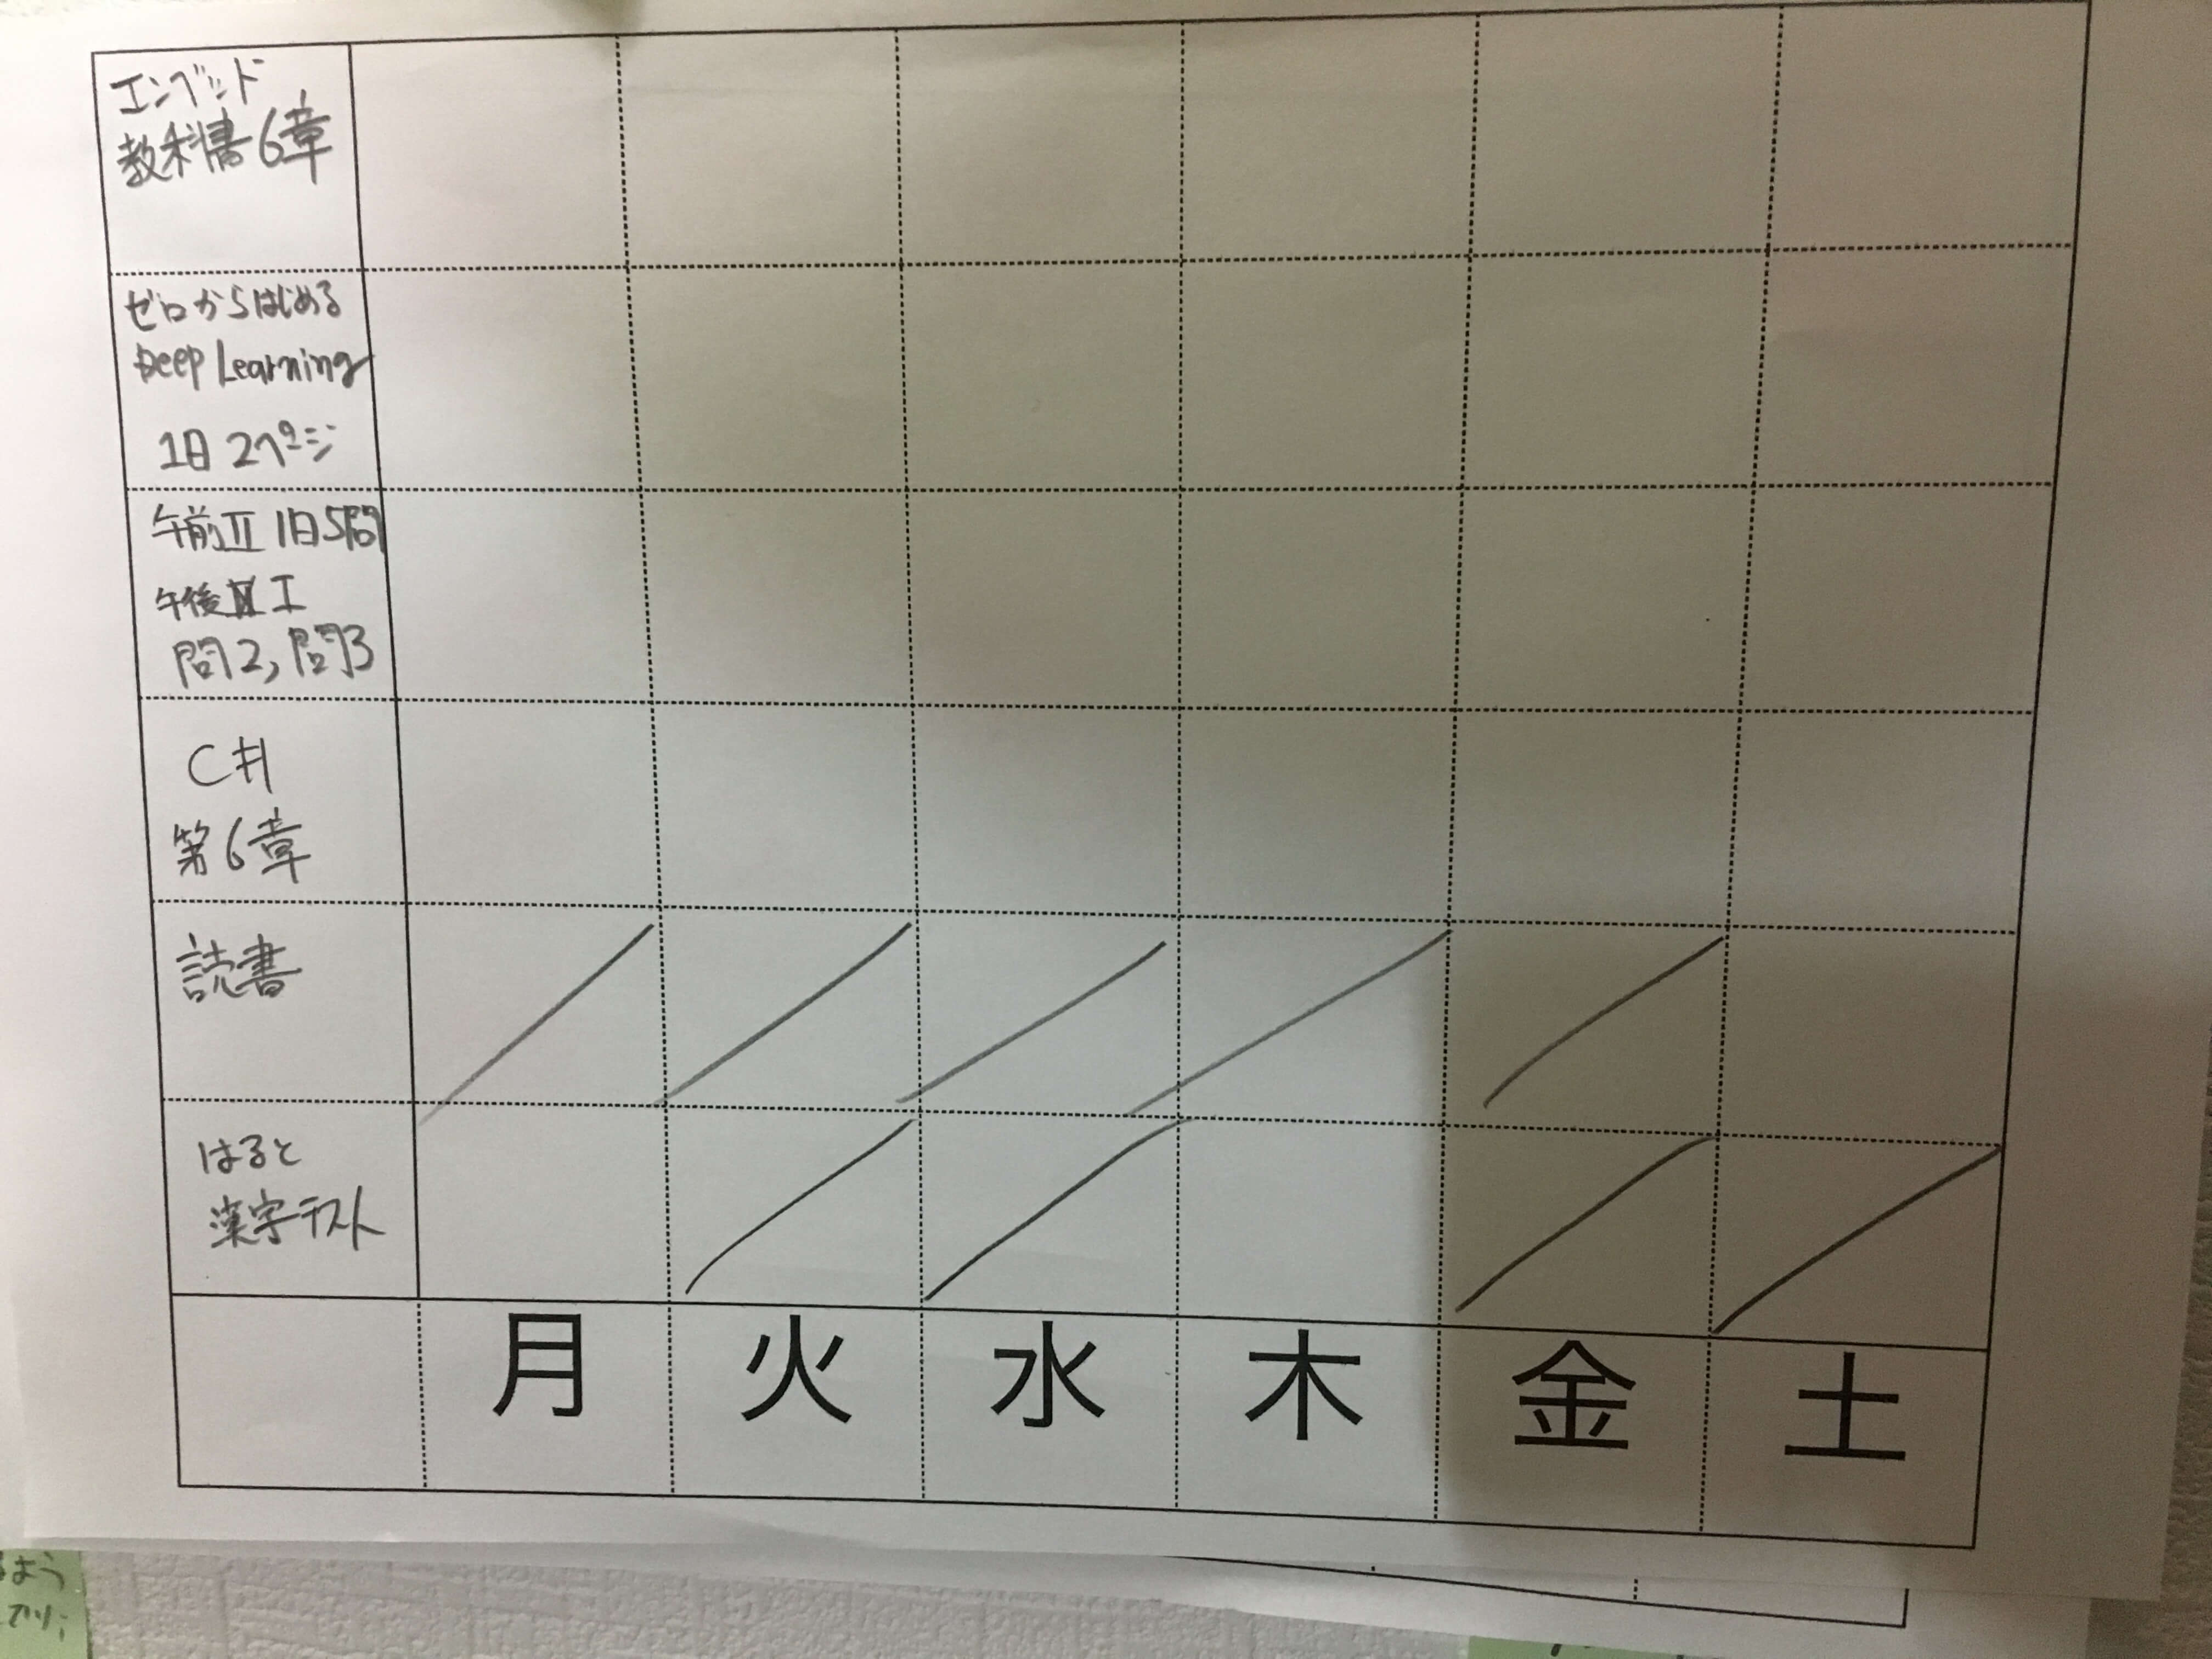 エンベッド
教科書6章
ゼロからはじめる
Deep Learning
1日2ページ
午前II 1日5問
午後 I
問2, 問3
C#
第6章
読書
はると
漢字テスト
月 火 水 木 金 土